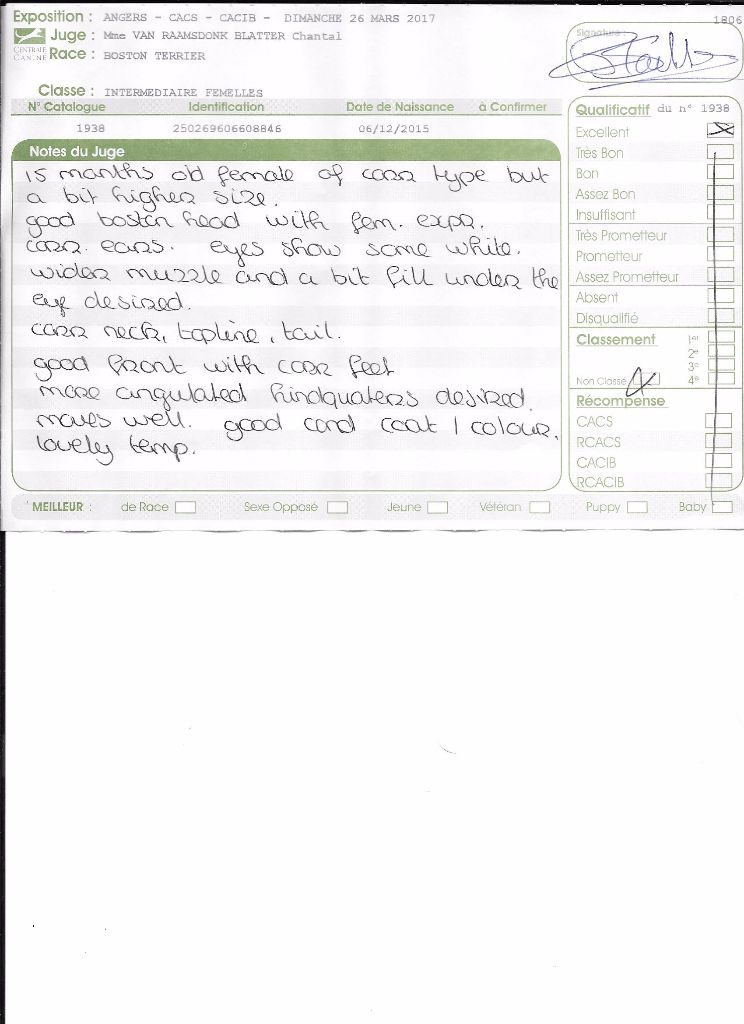 Exposition : ANGERS - CACS - CACIB - DIMANCHE 26 MARS 2017
1806
Juge : Mme VAN RAAMSDONK BLATTER Chantal
Signature :
CENTRALE CANINE
Race : BOSTON TERRIER
Classe : INTERMEDIAIRE FEMELLES
N° Catalogue Identification Date de Naissance à Confirmer
1938 250269606608846 06/12/2015
Notes du Juge
15 months old female of corr type but
a bit higher size.
good boston head with fem. expr.
corr. ears. eyes show some white.
wider muzzle and a bit fill under the
eye desired.
corr neck, topline, tail.
good front with corr feet
more angulated hindquaters desired.
moves well. good cond coat / colour.
lovely temp.
Qualificatif du n° 1938
Excellent
Très Bon
Bon
Assez Bon
Insuffisant
Très Prometteur
Prometteur
Assez Prometteur
Absent
Disqualifié
Classement 1er
2e
3e
Non Classé 4e
Récompense
CACS
RCACS
CACIB
RCACIB
MEILLEUR : de Race Sexe Opposé Jeune Vétéran Puppy Baby